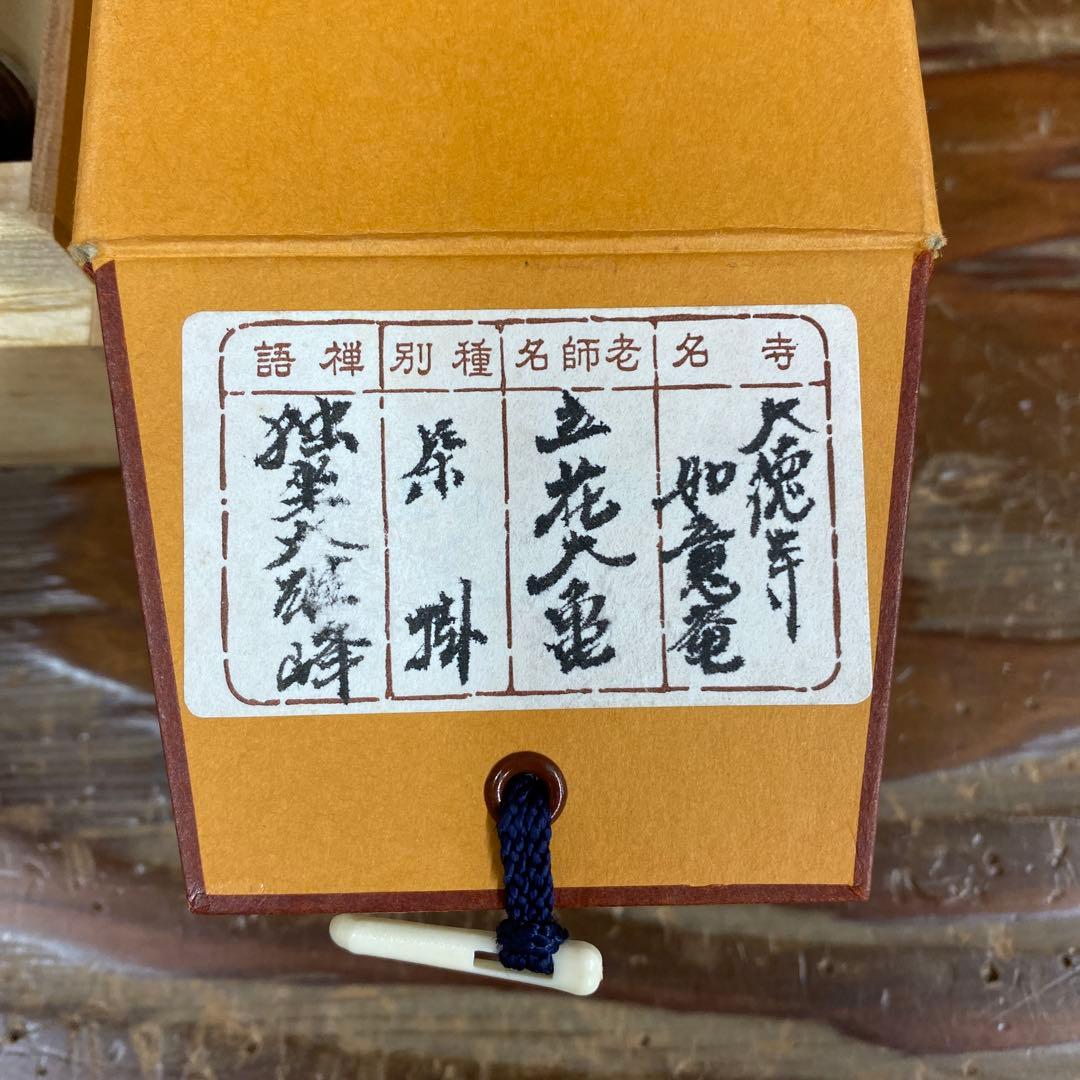 寺名
大徳寺
如意菴
老師名
立花大亀
種別
茶掛
禅語
独坐大雄峰